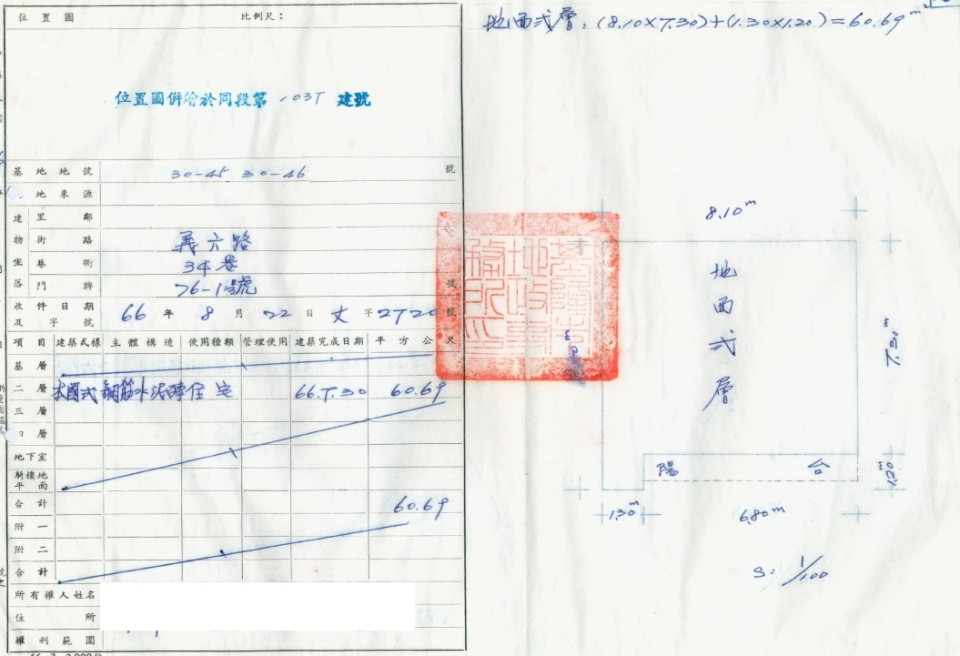 位置圖 比例尺：
位置圖併繪於同段第 1037 建號
基地地號 30-45 30-46 號
地來源
建 里 鄰
物 街 路 義六路
坐 巷 衖 34巷
落 門 牌 76-1號 號
收件日期 66年8月22日
及字號 文字2720號
項目 建築式樣 主體構造 使用種類 管理使用 建築完成日期 平方公尺
基層
二層 本國式 鋼筋水泥磚 住宅 66.7.30 60.69
三層
層
地下室
騎樓地
平面
合計 60.69
附一
附二
合計
所有權人姓名
住所
權利範圍
地面弍層：(8.10×7.30)+(1.30×1.20)=60.69m²
8.10m
地面弍層
7.30m
陽台
1.20m
1.30m 6.80m
S: 1/100